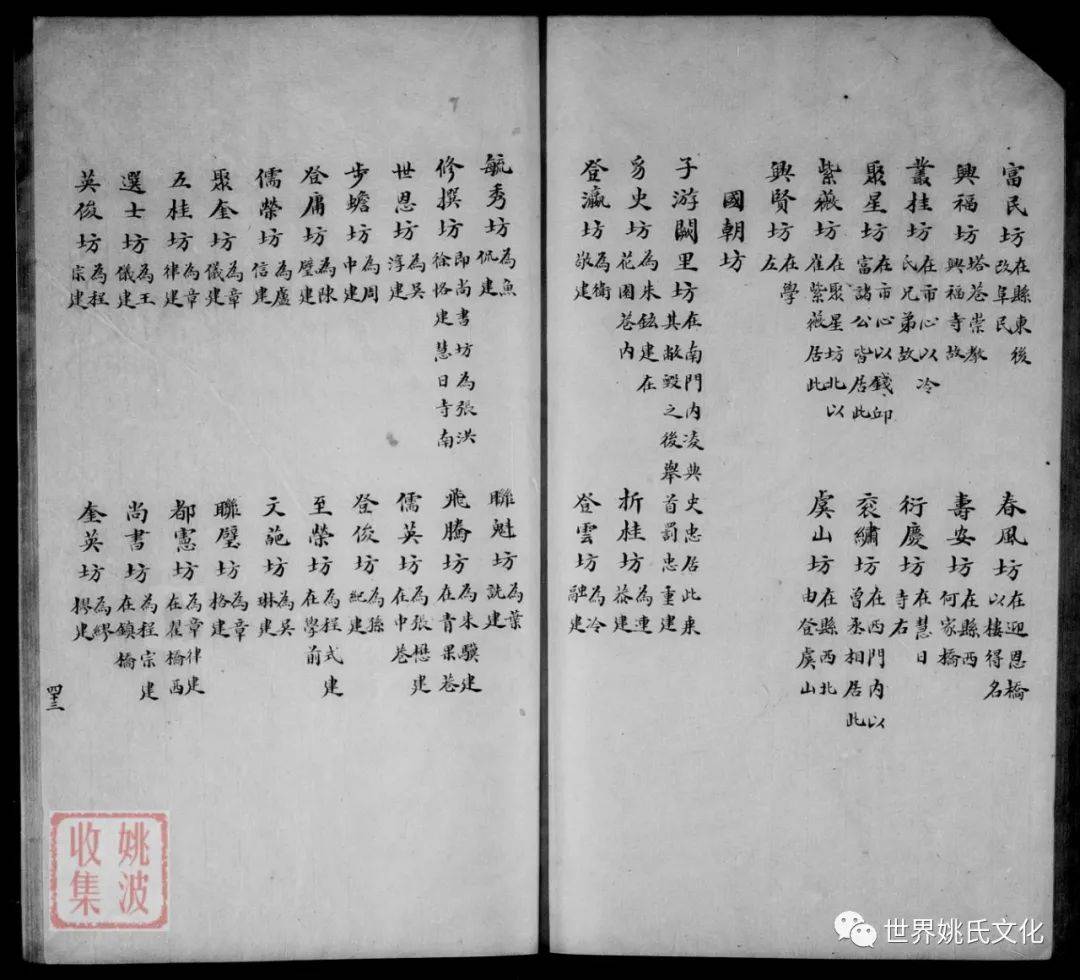 富民坊 在縣東後改阜民 春風坊 在迎恩橋以樓得名
興福坊 塔巷崇教興福寺故 壽安坊 在縣西何家橋
叢桂坊 在市心以冷氏兄弟故 衍慶坊 在慧日寺右
聚星坊 在市心以錢邱富諸公皆居此 衮繡坊 在西門內以曾丞相居此
紫薇坊 在聚星坊北以崔紫薇居此 虞山坊 在縣西北由登虞山
興賢坊 在學左
國朝坊
子游闕里坊 在南門內凌典史忠居此東其敝毀之後舉首罰忠重建
豸史坊 為朱鉉建在花園巷内 折桂坊 為連建
登瀛坊 為衛敬建 登雲坊 為冷融建
毓秀坊 為魚侃建 聯魁坊 為葉建
修撰坊 即尚書坊為張洪徐恪建慧日寺南 飛騰坊 為朱驥建在青果巷
世恩坊 為吳淳建 儒英坊 為張懋建在中巷
步蟾坊 為周中建 登俊坊 為孫紀建
登庸坊 為陳璧建 至榮坊 為程式建在學前
儒榮坊 為盧信建 文葩坊 為吳琳建
聚奎坊 為章儀建 聯璧坊 為章格建
五桂坊 為章律建 都憲坊 為章律建在翟橋西
選士坊 為王儀建 尚書坊 為程宗建在鎮橋
英俊坊 為程宗建 奎英坊 為繆樗建
四三
姚波
收集
世界姚氏文化